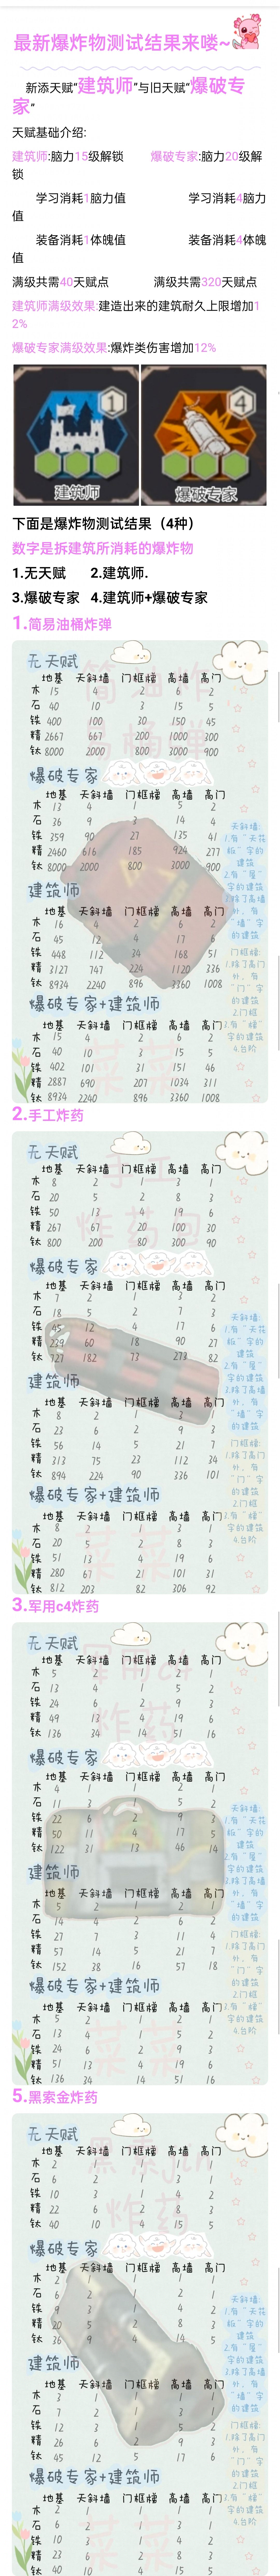 最新爆炸物测试结果来喽~
新添天赋"建筑师"与旧天赋"爆破专
家"
天赋基础介绍:
建筑师:脑力15级解锁 爆破专家:脑力20级解
锁
学习消耗1脑力值 学习消耗4脑力
值
装备消耗1体魄值 装备消耗4体魄
值
满级共需40天赋点 满级共需320天赋点
建筑师满级效果:建造出来的建筑耐久上限增加1
2%
爆破专家满级效果:爆炸类伤害增加12%
1 4
建筑师 爆破专家
下面是爆炸物测试结果（4种）
数字是拆建筑所消耗的爆炸物
1.无天赋 2.建筑师.
3.爆破专家 4.建筑师+爆破专家
1.简易油桶炸弹
无天赋
地基 天斜墙 门框槽 高墙 高门
木 15 4 2 6 2
石 40 10 3 15 5
铁 400 100 30 150 45
精 2667 667 200 1000 300
钛 8000 2000 800 3000 900
爆破专家
地基 天斜墙 门框槽 高墙 高门
木 13 4 1 5 2
石 36 9 3 14 4
铁 359 90 27 135 41
精 2460 616 185 924 277
钛 8000 2000 800 3000 900
建筑师
地基 天斜墙 门框槽 高墙 高门
木 16 4 2 6 2
石 45 12 4 17 6
铁 448 112 34 168 51
精 3127 747 224 1120 336
钛 8934 2240 896 3360 1008
爆破专家+建筑师
地基 天斜墙 门框槽 高墙 高门
木 15 4 2 6 2
石 40 10 3 15 5
铁 402 101 31 151 46
精 2887 690 207 1034 311
钛 8934 2240 896 3360 1008
天斜墙:
1.有"天花
板"字的
建筑
2.有"屋"
字的建筑
3.除了高墙
外，有
"墙"字
的建筑
门框槽:
1.除了高门
外，有
"门"字
的建筑
2.门框
3.有"槽"
字的建筑
4.台阶
2.手工炸药
无天赋
地基 天斜墙 门框槽 高墙 高门
木 8 2 1 3 1
石 20 5 2 8 3
铁 50 13 4 19 6
精 267 67 20 100 30
钛 800 200 80 300 90
爆破专家
地基 天斜墙 门框槽 高墙 高门
木 7 2 1 3 1
石 18 5 2 7 3
铁 45 12 4 17 6
精 239 60 18 90 27
钛 727 182 73 273 82
建筑师
地基 天斜墙 门框槽 高墙 高门
木 8 2 1 3 1
石 23 6 2 9 3
铁 56 14 5 21 7
精 313 75 23 112 34
钛 894 224 90 336 101
爆破专家+建筑师
地基 天斜墙 门框槽 高墙 高门
木 8 2 1 3 1
石 20 5 2 8 3
铁 51 13 4 19 6
精 280 67 21 101 31
钛 812 203 82 306 92
天斜墙:
1.有"天花
板"字的
建筑
2.有"屋"
字的建筑
3.除了高墙
外，有
"墙"字
的建筑
门框槽:
1.除了高门
外，有
"门"字
的建筑
2.门框
3.有"槽"
字的建筑
4.台阶
3.军用c4炸药
无天赋
地基 天斜墙 门框槽 高墙 高门
木 5 2 1 2 1
石 13 4 1 5 2
铁 24 6 2 9 3
精 49 13 4 19 6
钛 136 34 14 51 16
爆破专家
地基 天斜墙 门框槽 高墙 高门
木 4 1 1 2 1
石 11 3 1 5 2
铁 22 6 2 9 3
精 50 11 4 17 5
钛 122 31 13 46 14
建筑师
地基 天斜墙 门框槽 高墙 高门
木 5 2 1 2 1
石 14 4 2 6 2
铁 27 7 3 11 4
精 57 14 5 21 7
钛 152 38 16 57 18
爆破专家+建筑师
地基 天斜墙 门框槽 高墙 高门
木 5 2 1 2 1
石 13 4 1 5 2
铁 24 6 2 9 3
精 51 13 4 19 6
钛 136 34 14 51 16
天斜墙:
1.有"天花
板"字的
建筑
2.有"屋"
字的建筑
3.除了高墙
外，有
"墙"字
的建筑
门框槽:
1.除了高门
外，有
"门"字
的建筑
2.门框
3.有"槽"
字的建筑
4.台阶
5.黑索金炸药
无天赋
地基 天斜墙 门框槽 高墙 高门
木 2 1 1 1 1
石 6 2 1 3 1
铁 10 3 1 4 2
精 22 6 2 8 3
钛 40 10 4 15 5
爆破专家
地基 天斜墙 门框槽 高墙 高门
木 2 1 1 1 1
石 6 2 1 2 1
铁 9 3 1 4 2
精 20 5 2 8 3
钛 36 9 4 14 5
建筑师
地基 天斜墙 门框槽 高墙 高门
木 3 1 1 1 1
石 7 2 1 3 1
铁 12 3 1 5 2
精 26 6 2 9 3
钛 45 12 5 17 6
爆破专家+建筑师
地基 天斜墙 门框槽 高墙 高门
木 2 1 1 1 1
石 6 2 1 3 1
铁 10 3 1 4 2
精 23 6 2 8 3
钛 40 10 4 15 5
天斜墙:
1.有"天花
板"字的
建筑
2.有"屋"
字的建筑
3.除了高墙
外，有
"墙"字
的建筑
门框槽:
1.除了高门
外，有
"门"字
的建筑
2.门框
3.有"槽"
字的建筑
4.台阶